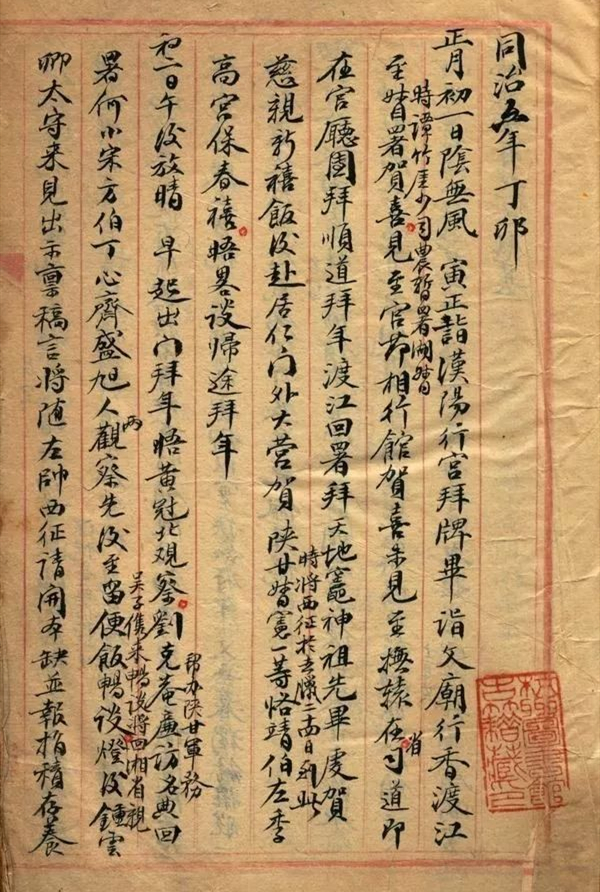 同治五年丁卯
正月初一日陰無風　寅正詣漢陽行宮拜牌畢詣文廟行香渡江
至督署賀喜見至官節相行館賀喜未見至撫轅在司道即
時譚竹崖少司農暫署湖督
省
在官廳團拜順道拜年渡江回署拜天地竈神祖先畢虔賀
慈親新禧飯後赴居仁門外大營賀陝甘督憲一等恪靖伯左季
時將西征於去臘二十四日到此
高宮保春禧晤畧談歸途拜年
初二日午後放晴　早起出門拜年晤黃冠北觀察劉克菴廉訪名典回
幫办陝甘軍務
署何小宋方伯丁心齋盛旭人觀察先後至留便飯暢談燈後鍾雲
兩
吳子儁來暢談將回湘省親
卿太守來見出示稟稿言將随左帥西征請開本缺並報捐積存養